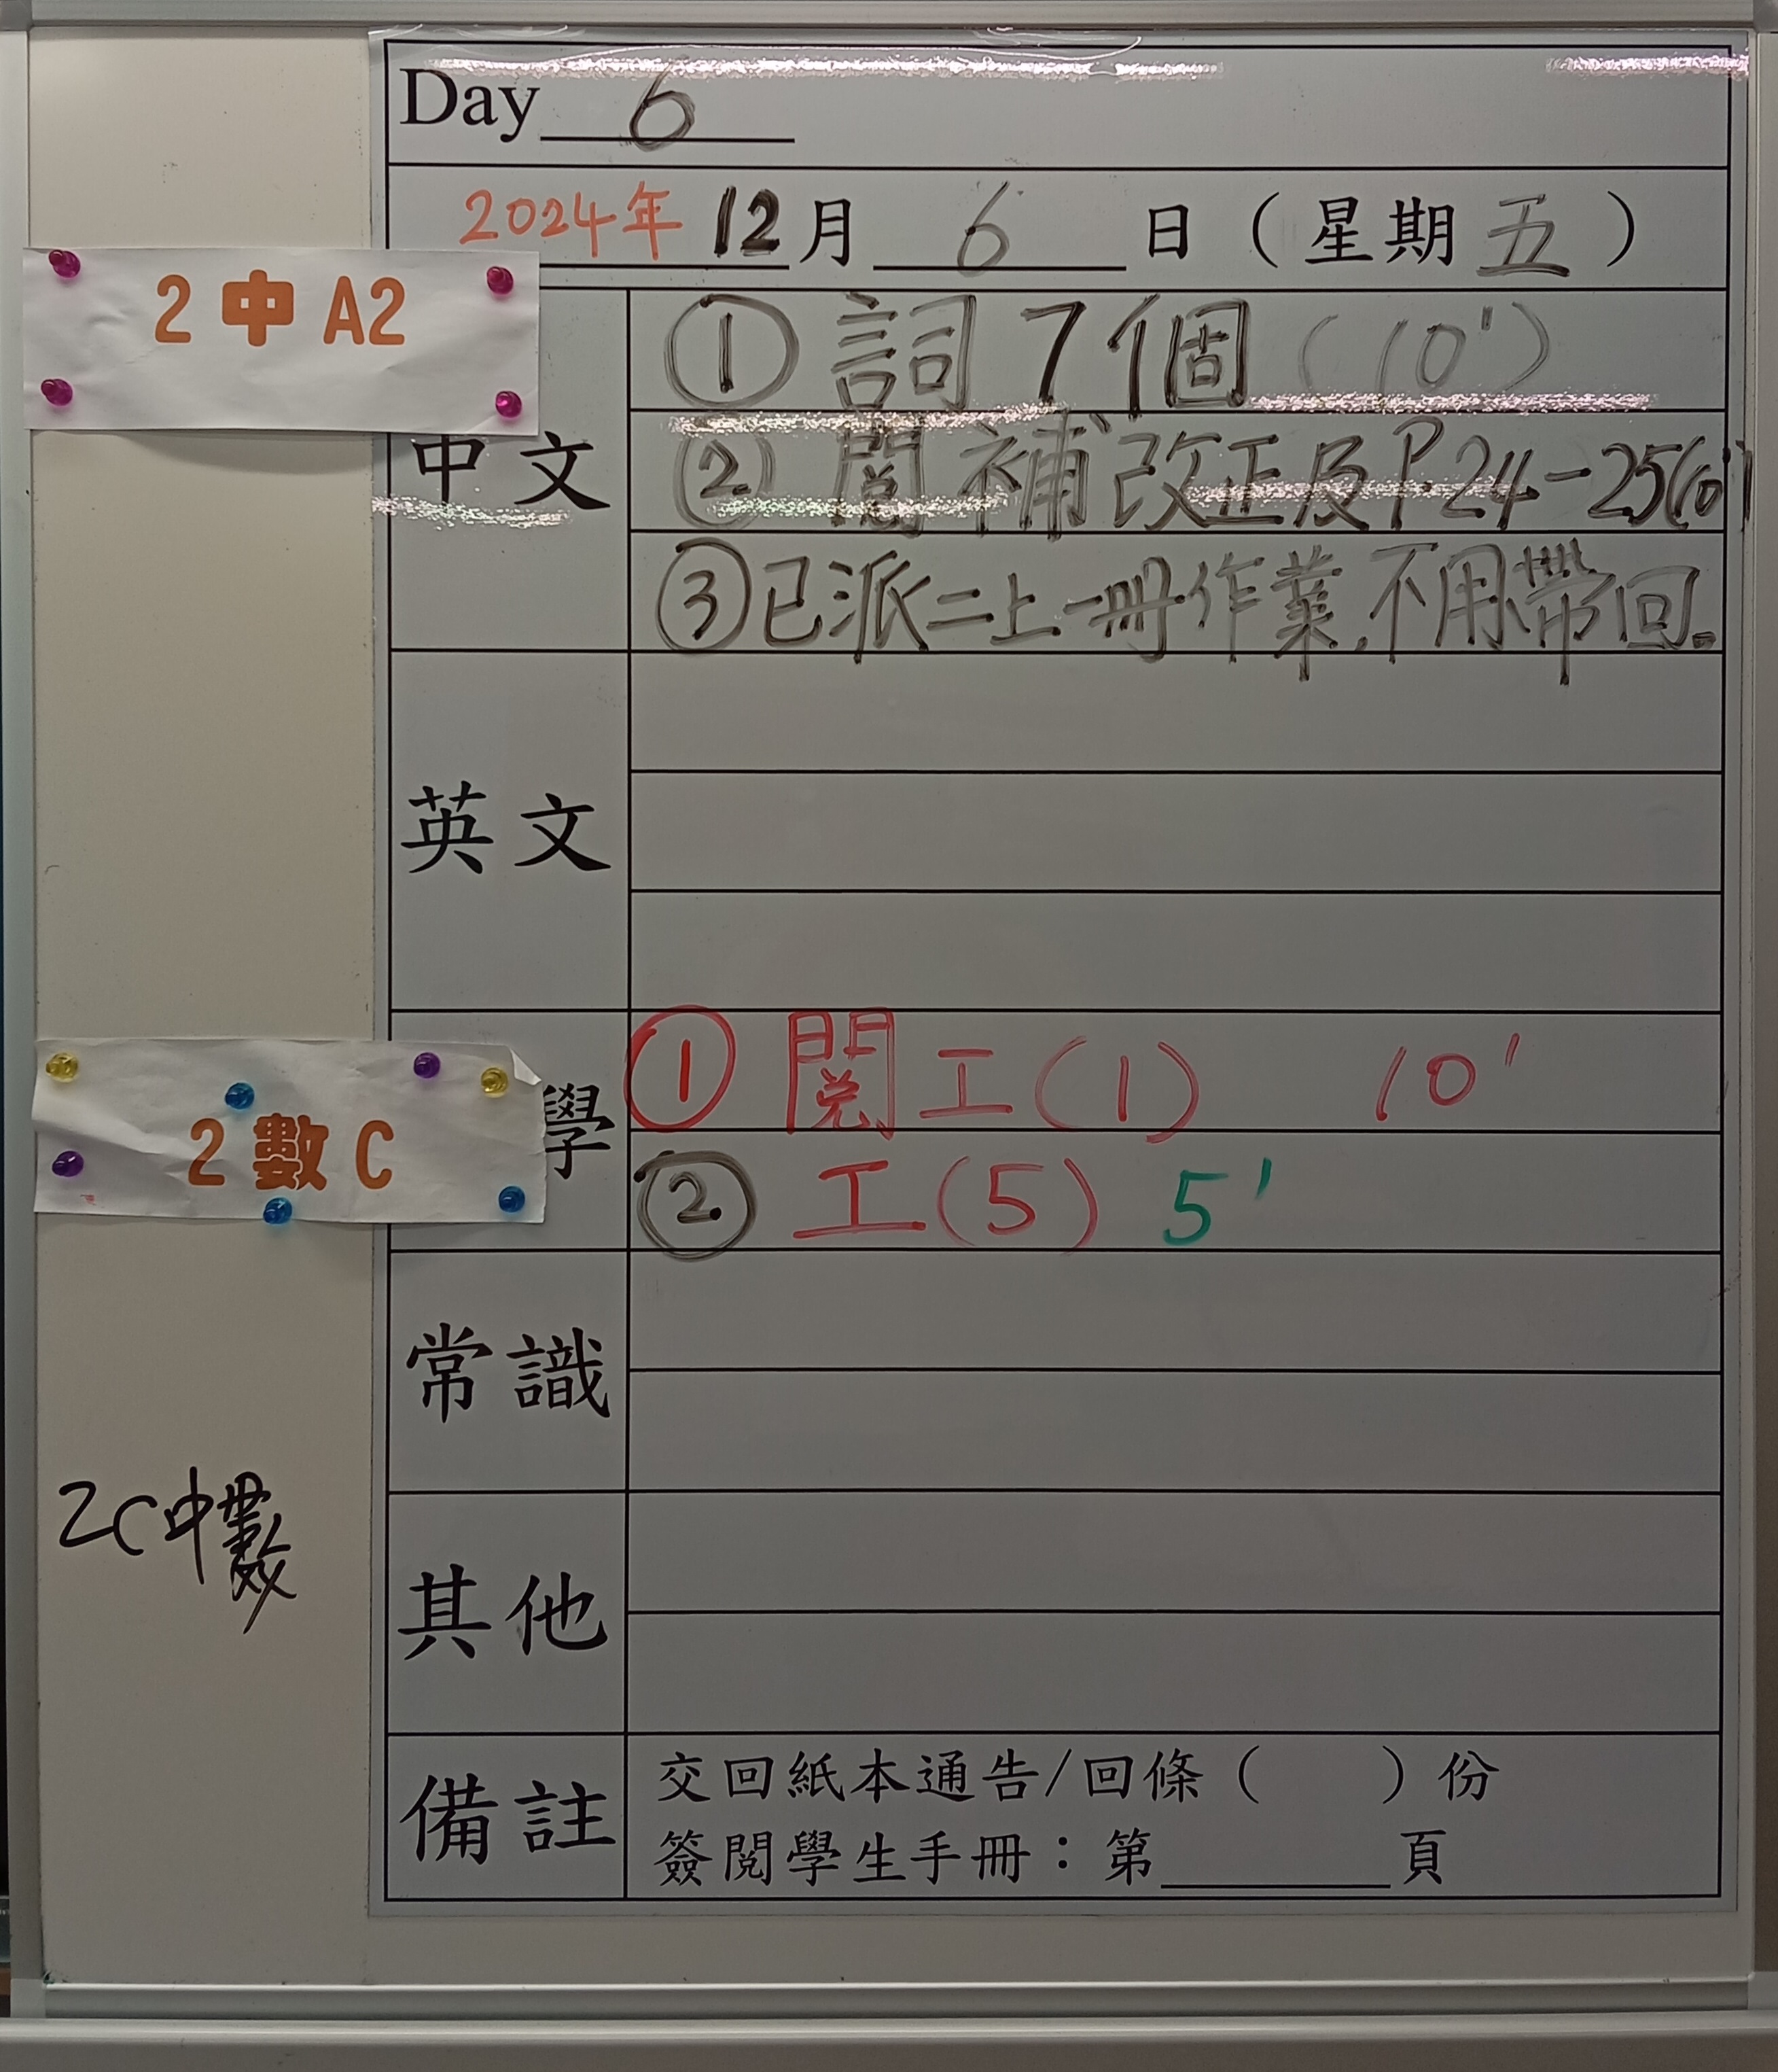 Day 6
2024年 12月 6 日（星期五）
2 中 A2
中文
① 詞 7 個 (10')
② 閱補改正及 P.24-25(10')
③ 已派二上一冊作業,不用帶回。
英文
2 數 C
學
① 閱工(1) 10'
② 工(5) 5'
常識
2C中數
其他
備註
交回紙本通告/回條（ ）份
簽閱學生手冊：第 頁